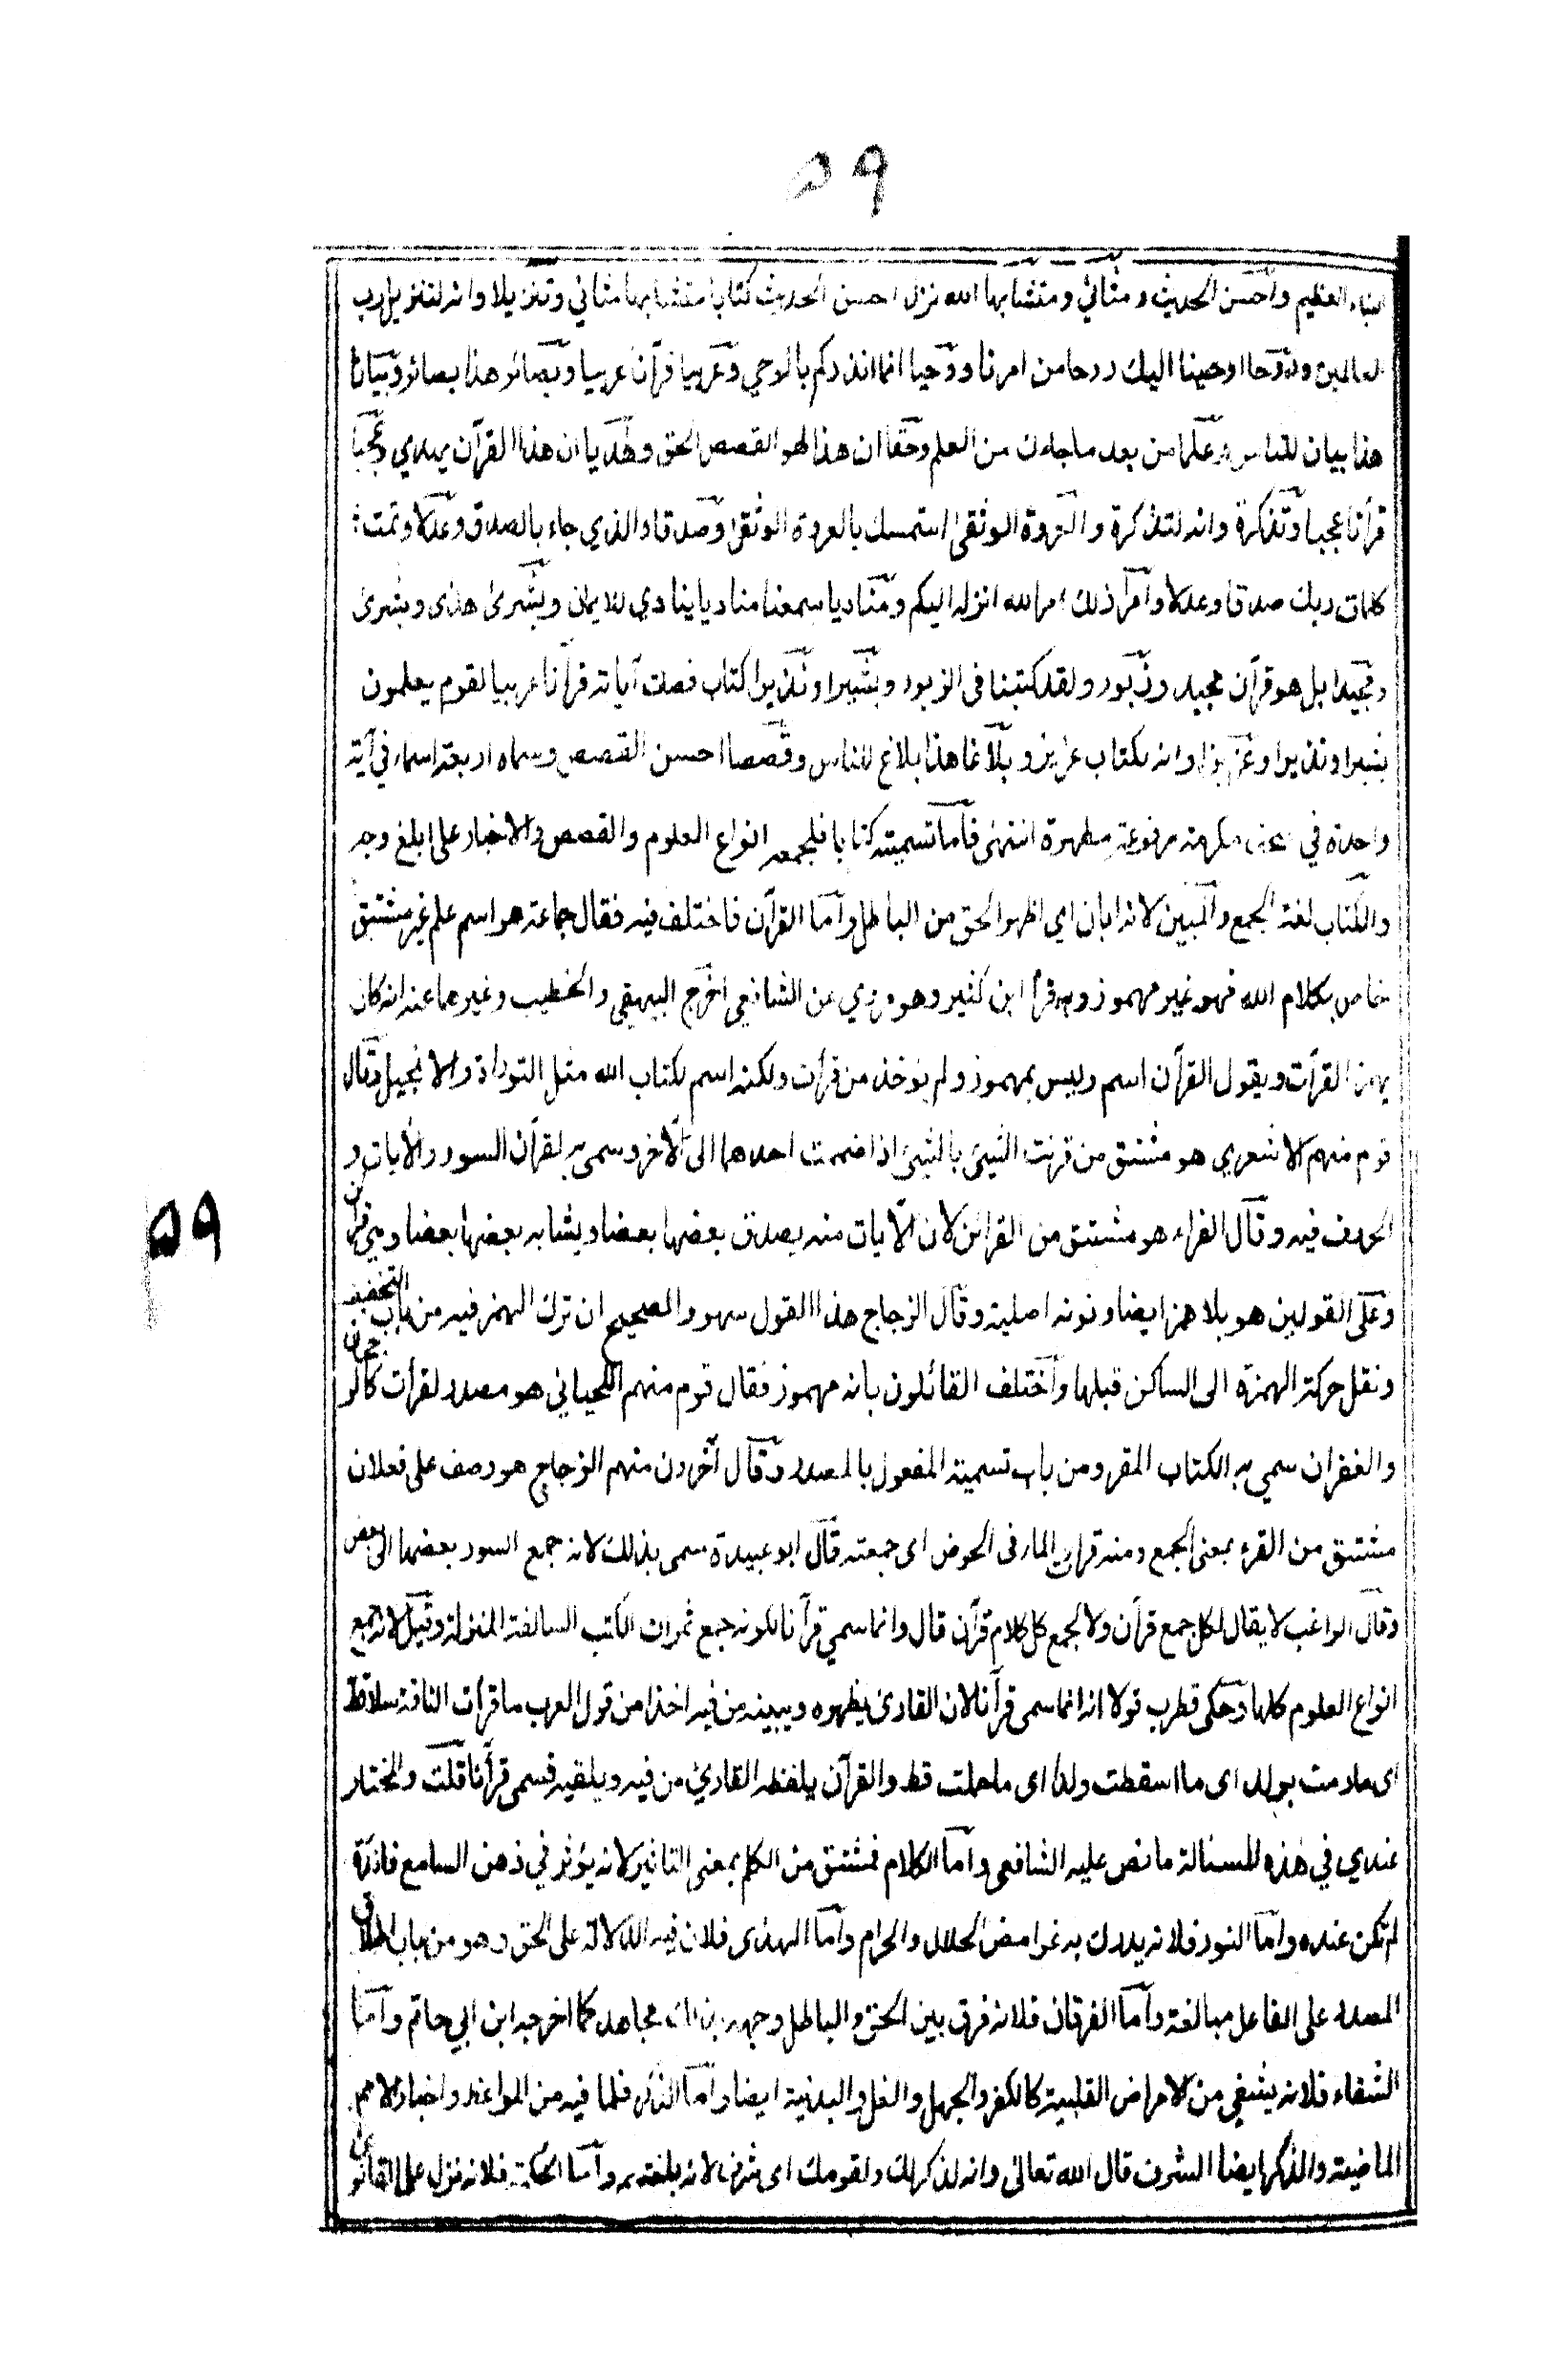 ۵۹
النباء العظيم وأحسن الحديث و مثاني ومتشابها الله نزل احسن الحديث كتابا متشابها مثاني وتنزيلا وانه لتنزيل رب
العالمين وروحا اوحينا اليك روحا من امرنا ووحيا انما انذركم بالوحي وعربيا قرآنا عربيا وبصائر هذا بصائر وبيانا
هذا بيان للناس وعلما من بعد ماجاءك من العلم وحقا ان هذا لهو القصص الحق وهديا ان هذا القرآن يهدي وعجبا
قرآنا عجبا وتذكرة وانه لتذكرة و العروة الوثقى استمسك بالعروة الوثقى وصدقا والذي جاء بالصدق وعدلا وتمت
كلمات ربك صدقا وعدلا وامرا ذلك امر الله انزله اليكم ومناديا سمعنا مناديا ينادي للايمان وبشرى هدى وبشرى
ومجيدا بل هو قرآن مجيد وزبور ولقد كتبنا فى الزبور وبشيرا ونذيرا كتاب فصلت آياته قرآنا عربيا لقوم يعلمون
بشيرا ونذيرا وعزيزا وانه لكتاب عزيز وبلاغا هذا بلاغ للناس وقصصا احسن القصص وسماه اربعة اسماء في آية
واحدة في صحف مكرمة مرفوعة مطهرة انتهى فاما تسميته كتابا فلجمعه انواع العلوم والقصص والاخبار على ابلغ وجه
والكتاب لغة الجمع والمبين لانه ابان اي اظهر الحق من الباطل واما القرآن فاختلف فيه فقال جماعة هو اسم علم غير مشتق
خاص بكلام الله فهو غير مهموز وبه قرأ ابن كثير وهو مروي عن الشافعي اخرج البيهقي والخطيب وغيرهما عنه انه كان
يهمز القرآت ويقول القرآن اسم وليس بمهموز ولم يوخذ من قرأت ولكنه اسم لكتاب الله مثل التوراة والانجيل وقال
قوم منهم الاشعري هو مشتق من قرنت الشيئ بالشيئ اذا ضممت احدهما الى الآخر وسمى به لقرآن السور والأيات و
الحروف فيه وقال الفراء هو مشتق من القرائن لان الآيات منه يصدق بعضها بعضا ويشابه بعضها بعضا وهي قرائن
وعلى القولين هو بلا همز ايضا ونونه اصلية وقال الزجاج هذا القول سهو والصحيح ان ترك الهمز فيه من باب التخفيف
ونقل حركة الهمزة الى الساكن قبلها واختلف القائلون بانه مهموز فقال قوم منهم اللحياني هو مصدر لقرأت كالرجحان
والغفران سمي به الكتاب المقرو من باب تسمية المفعول بالمصدر وقال آخرون منهم الزجاج هو وصف على فعلان
مشتق من القرء بمعنى الجمع ومنه قرات الماء فى الحوض اى جمعته قال ابو عبيدة سمى بذلك لانه جمع السور بعضها الى بعض
وقال الراغب لا يقال لكل جمع قرآن ولا لجمع كل كلام قرآن قال وانما سمي قرآنا لكونه جمع ثمرات الكتب السالفة المنزلة وقيل لانه جمع
انواع العلوم كلها وحكى قطرب قولا انه انما سمى قرآنا لان القارئ يظهره ويبينه من فيه اخذا من قول العرب ما قرأت الناقة سلاقط
اى مارمت بولد اى ما اسقطت ولدا اى ماحملت قط والقرآن يلفظه القاري من فيه ويلقيه فسمى قرآنا قلت والمختار
عندي في هذه المسئالة ما نص عليه الشافعى واما الكلام فمشتق من الكلم بمعنى التاثير لانه يؤثر في ذهن السامع فائدة
لم تكن عنده واما النور فلانه يدرك به غوامض الحلال والحرام واما الهدى فلان فيه الدلالة على الحق وهو من باب اطلاق
المصدر على الفاعل مبالغة واما الفرقان فلانه فرق بين الحق والباطل وجهه بذلك مجاهد كما اخرجه ابن ابي حاتم واما
الشفاء فلانه يشفي من الامراض القلبية كالكفر والجهل والغل والبدنية ايضا واما الذكر فلما فيه من المواعظ واخبار الامم
الماضية والذكر ايضا الشرف قال الله تعالى وانه لذكر لك ولقومك اى شرف لانه بلغتهم واما الحكمة فلانه نزل على القانون
۵۹